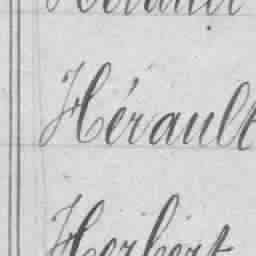 Hérault
Herbert